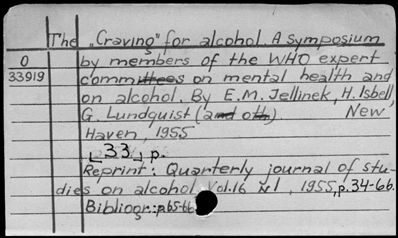 The „Craving" for alcohol. A symposium
0 by members of the WHO expert
33919 committees on mental health and
on alcohol. By E.M. Jellinek, H. Isbell,
G. Lundquist (and oth.) New
Haven, 1955
33 p.
Reprint: Quarterly journal of stu-
dies on alcohol Vol.16 №1, 1955, p.34-66.
Bibliogr.: p.65-66